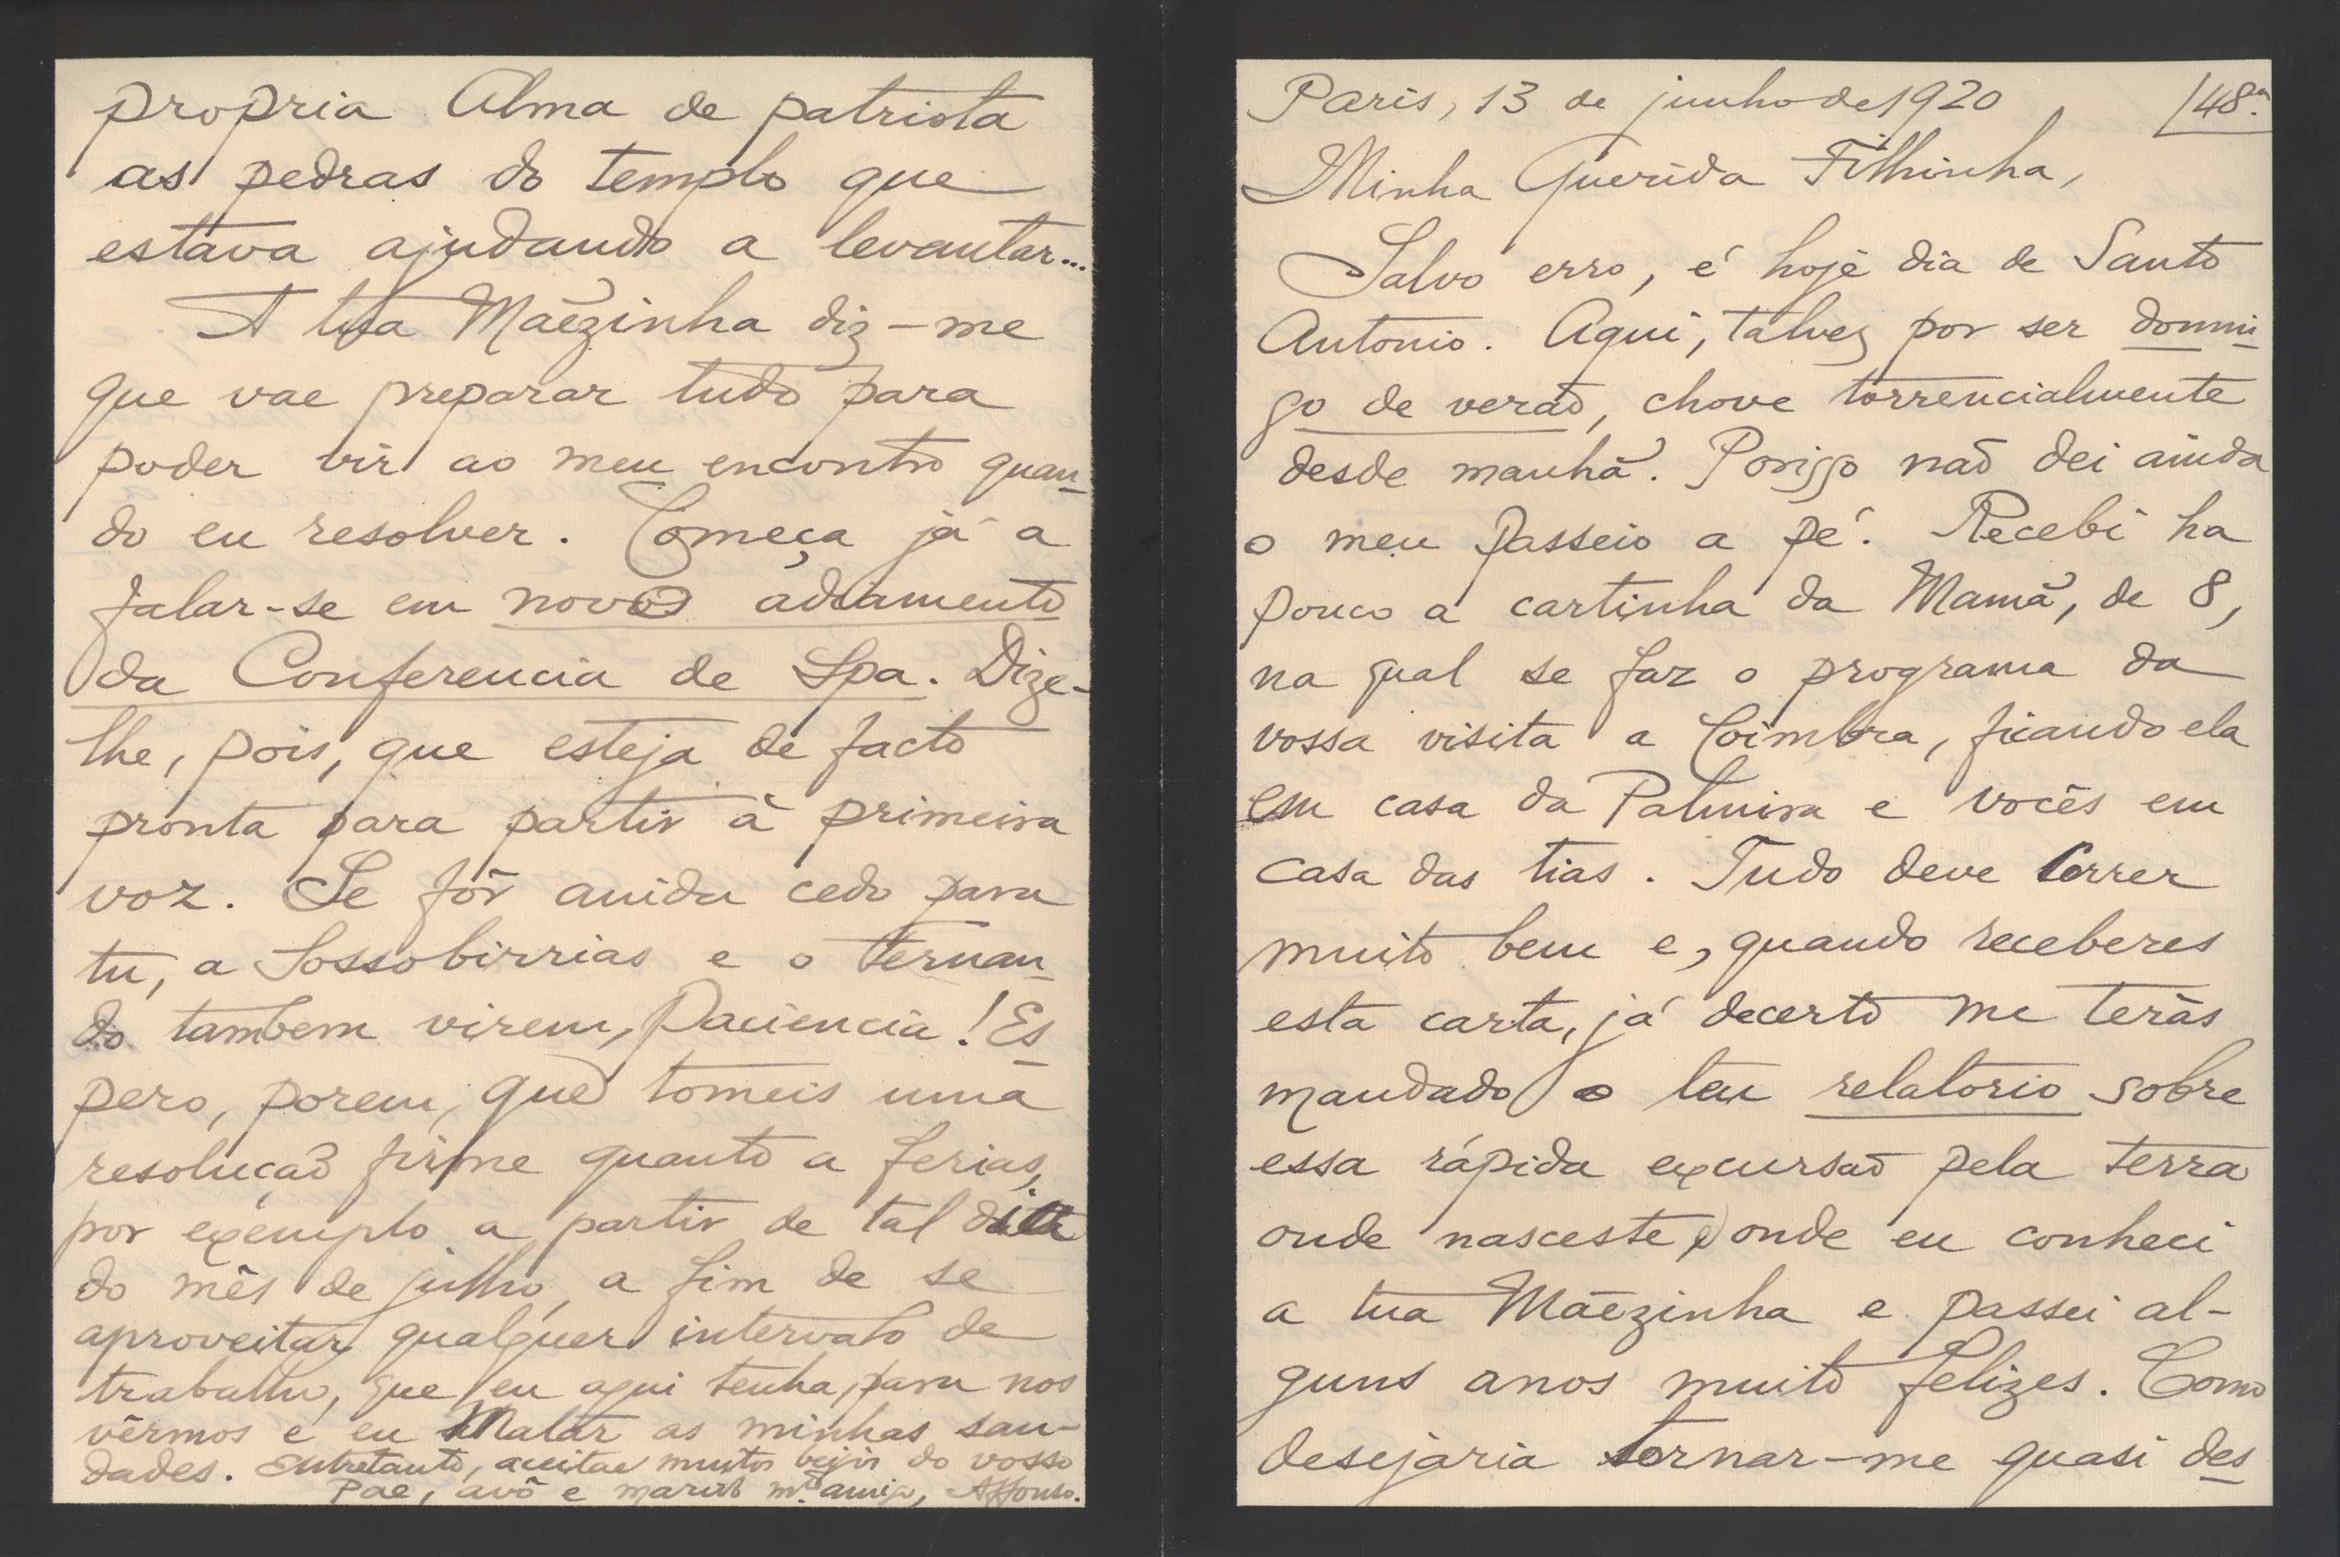 propria Alma de patriota
as pedras do templo que
estava ajudando a levantar...
A tua Mãezinha diz-me
que vae preparar tudo para
poder vir ao meu encontro quan-
do eu resolver. Começa já a
falar-se em novo adiamento
da Conferencia de Spa. Dize-
lhe, pois, que esteja de facto
pronta para partir à primeira
voz. Se fôr ainda cedo para
tu, a Sossobirrias e o Fernan-
do tambem virem, Paciencia! Es-
pero, porem, que tomeis uma
resolução firme quanto a ferias,
por exemplo a partir de tal
do mês de julho, a fim de se
aproveitar qualquer intervalo de
trabalho, que eu aqui tenha, para nos
vêrmos e eu Matar as minhas sau-
dades. Entretanto, aceitae muitos beijos do vosso
Pae, avô e marido mto amigo, Affonso.
Paris, 13 de junho de 1920
148ª
Minha Querida Filhinha,
Salvo erro, é hoje dia de Santo
Antonio. Aqui, talvez por ser domin-
go de verão, chove torrencialmente
desde manhã. Porisso não dei ainda
o meu passeio a pé. Recebi ha
pouco a cartinha da Mamã, de 8,
na qual se faz o programa da
vossa visita a Coimbra, ficando ela
em casa da Palmira e vocês em
casa das tias. Tudo deve correr
muito bem e, quando receberes
esta carta, já decerto me terás
mandado o teu relatorio sobre
essa rápida excursão pela terra
onde nasceste e onde eu conheci
a tua Mãezinha e passei al-
guns anos muito felizes. Como
desejaria tornar-me quasi des-